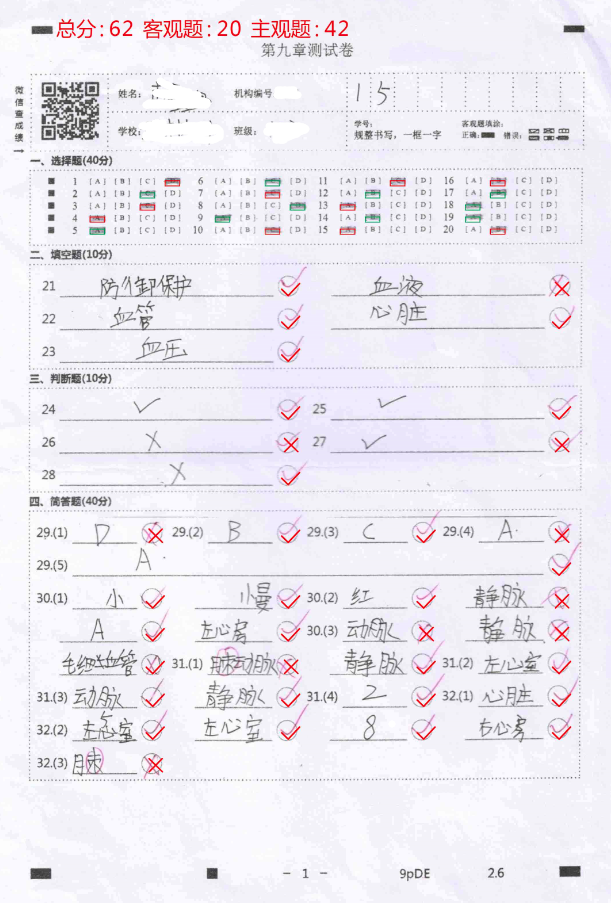 总分:62 客观题:20 主观题:42
第九章测试卷
微信查成绩
姓名: 机构编号 15
学校: 班级: 学号: 客观题填涂:
规整书写,一框一字 正确: 错误:
一、选择题(40分)
1 [A] [B] [C] 6 [A] [B] [D] 11 [A] [B] [D] 16 [A] [C] [D]
2 [A] [B] [D] 7 [A] [B] [D] 12 [A] [C] [D] 17 [A] [C] [D]
3 [A] [B] [D] 8 [A] [B] [C] 13 [B] [C] [D] 18 [B] [C] [D]
4 [B] [C] [D] 9 [B] [C] [D] 14 [A] [C] [D] 19 [B] [C] [D]
5 [B] [C] [D] 10 [A] [B] [D] 15 [B] [C] [D] 20 [A] [C] [D]
二、填空题(10分)
21 防御保护 血液
22 血管 心脏
23 血压
三、判断题(10分)
24 ✓ 25 ✓
26 X 27 ✓
28 X
四、简答题(40分)
29.(1) D 29.(2) B 29.(3) C 29.(4) A.
29.(5) A.
30.(1) 小 慢 30.(2) 红 静脉
A 左心房 30.(3) 动脉 静脉
毛细血管 31.(1) 动脉 静脉 31.(2) 左心室
31.(3) 动脉 静脉 31.(4) 2 32.(1) 心脏
32.(2) 左心室 左心室 8 右心房
32.(3)
- 1 - 9pDE 2.6